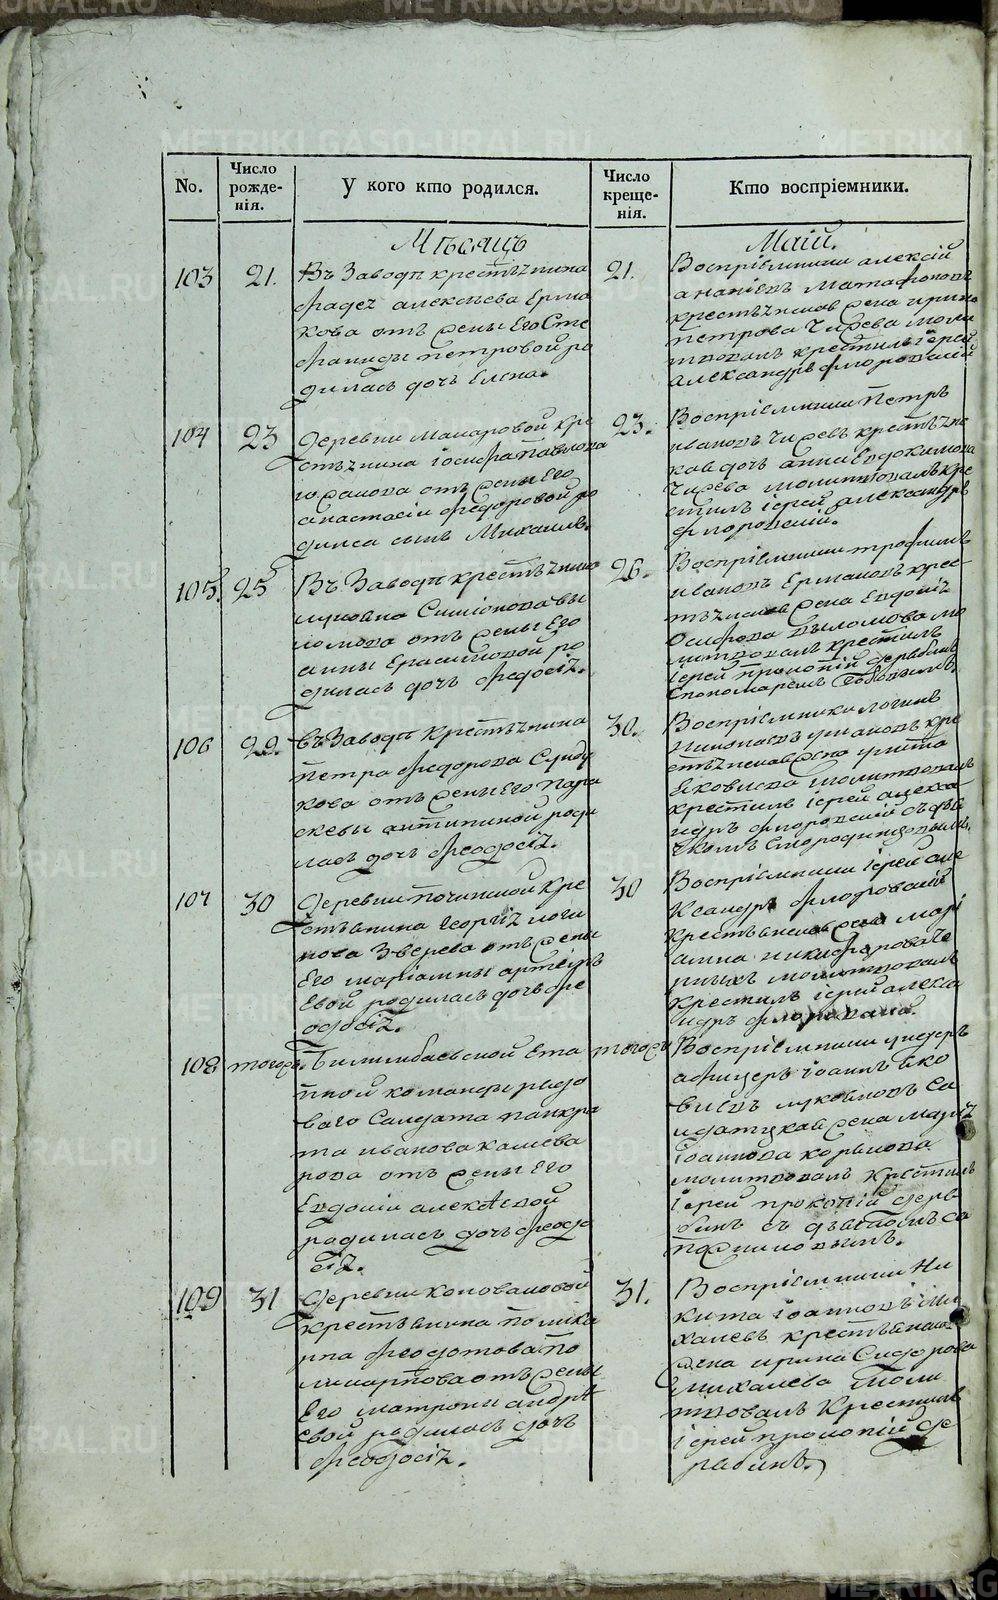 METRIKI.GASO-URAL.RU
No.
Число рожде-нія.
У кого кто родился.
Число креще-нія.
Кто воспріемники.
Мѣсяцъ
Маій.
103
21.
Въ Заводѣ крестьянина
Фадея алексѣева Ерма
кова отъ жены Его Сте
фаниды петровой ро
дилась дочь Елена.
21.
Воспріемники алексій
ананіевъ
крестьянская жена ирина
петрова Чирева моли
твовалъ крестилъ іерей
александръ флоровскій
104
23
деревни Макаровой кре
стьянина іосифа павлова
отъ жены Его
анастасіи федоровой ро
дился сынъ Михаилъ.
23.
Воспріемники Петръ
ивановъ Чиревъ крестьянс
кая дочь анна Евдокимова
Чирева молитвовалъ кре
стилъ іерей александръ
флоровскій.
105.
25
Въ Заводѣ крестьянина
Симіонова вы
ломова отъ жены Его
анны Ерасимовой ро
дилась дочь федосія.
26.
Воспріемники трофимъ
ивановъ Ермаковъ крес
тьянская жена Евдокія
Осипова выломова мо
литвовалъ крестилъ
іерей прокопій дерябинъ
спономаремъ
106
29.
въ Заводѣ крестьянина
петра федорова
кова отъ жены Его пара
скевы антипиной роди
лась дочь феодосія.
30.
Воспріемники логинъ
Николаевъ ушаковъ кре
стьянская жена улита
Яковлева молитвовалъ
крестилъ іерей алекса
ндръ флоровскій съ дья
чкомъ Смородинцовымъ.
107
30
деревни починной Кре
стьянина георгія логи
нова Зверева отъ жены
Его маріамны артемь
Евой родилась дочь фе
одосія.
30
Воспріемники іерей але
Ксандръ флоровскій
крестьянская жена марі
амна никифорова
молитвовалъ
крестилъ іерей алекса
ндръ
108
тогожъ.
Билимбаевской Эта
пной команды рядо
ваго Салдата панкра
та иванова
отъ жены Его
Евдокіи алексѣевой
родилась дочь феодо
сія.
тогожъ
Воспріемники ундеръ
афицеръ іоаннъ Яко
влевъ луковковъ Са
лдатская жена марія
іоаннова
молитвовалъ крестилъ
іерей прокопій деря
бинъ съ дьячкомъ Са
пожниковымъ.
109
31
деревни Коноваловой
крестьянина полика
рпа феодотова по
ликарпова отъ жены
Его матроны андрѣ
евой родилась дочь
феодосія.
31.
Воспріемники Ни
кита іоанновъ Ми
халевъ крестьянская
жена ирина Сидорова
михалева моли
твовалъ Крестилъ
іерей прокопій де
рябинъ.